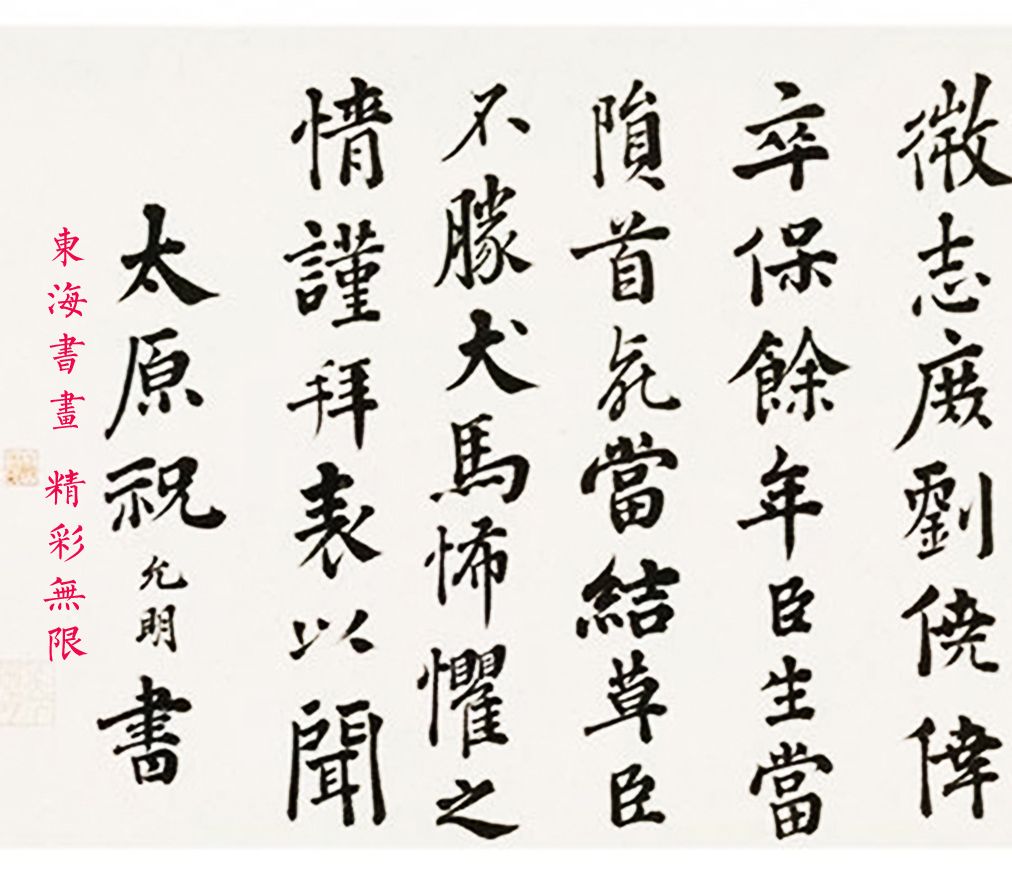 微志庶劉僥倖
卒保餘年臣生當
隕首死當結草臣
不勝犬馬怖懼之
情謹拜表以聞
太原祝允明書
東海書畫 精彩無限